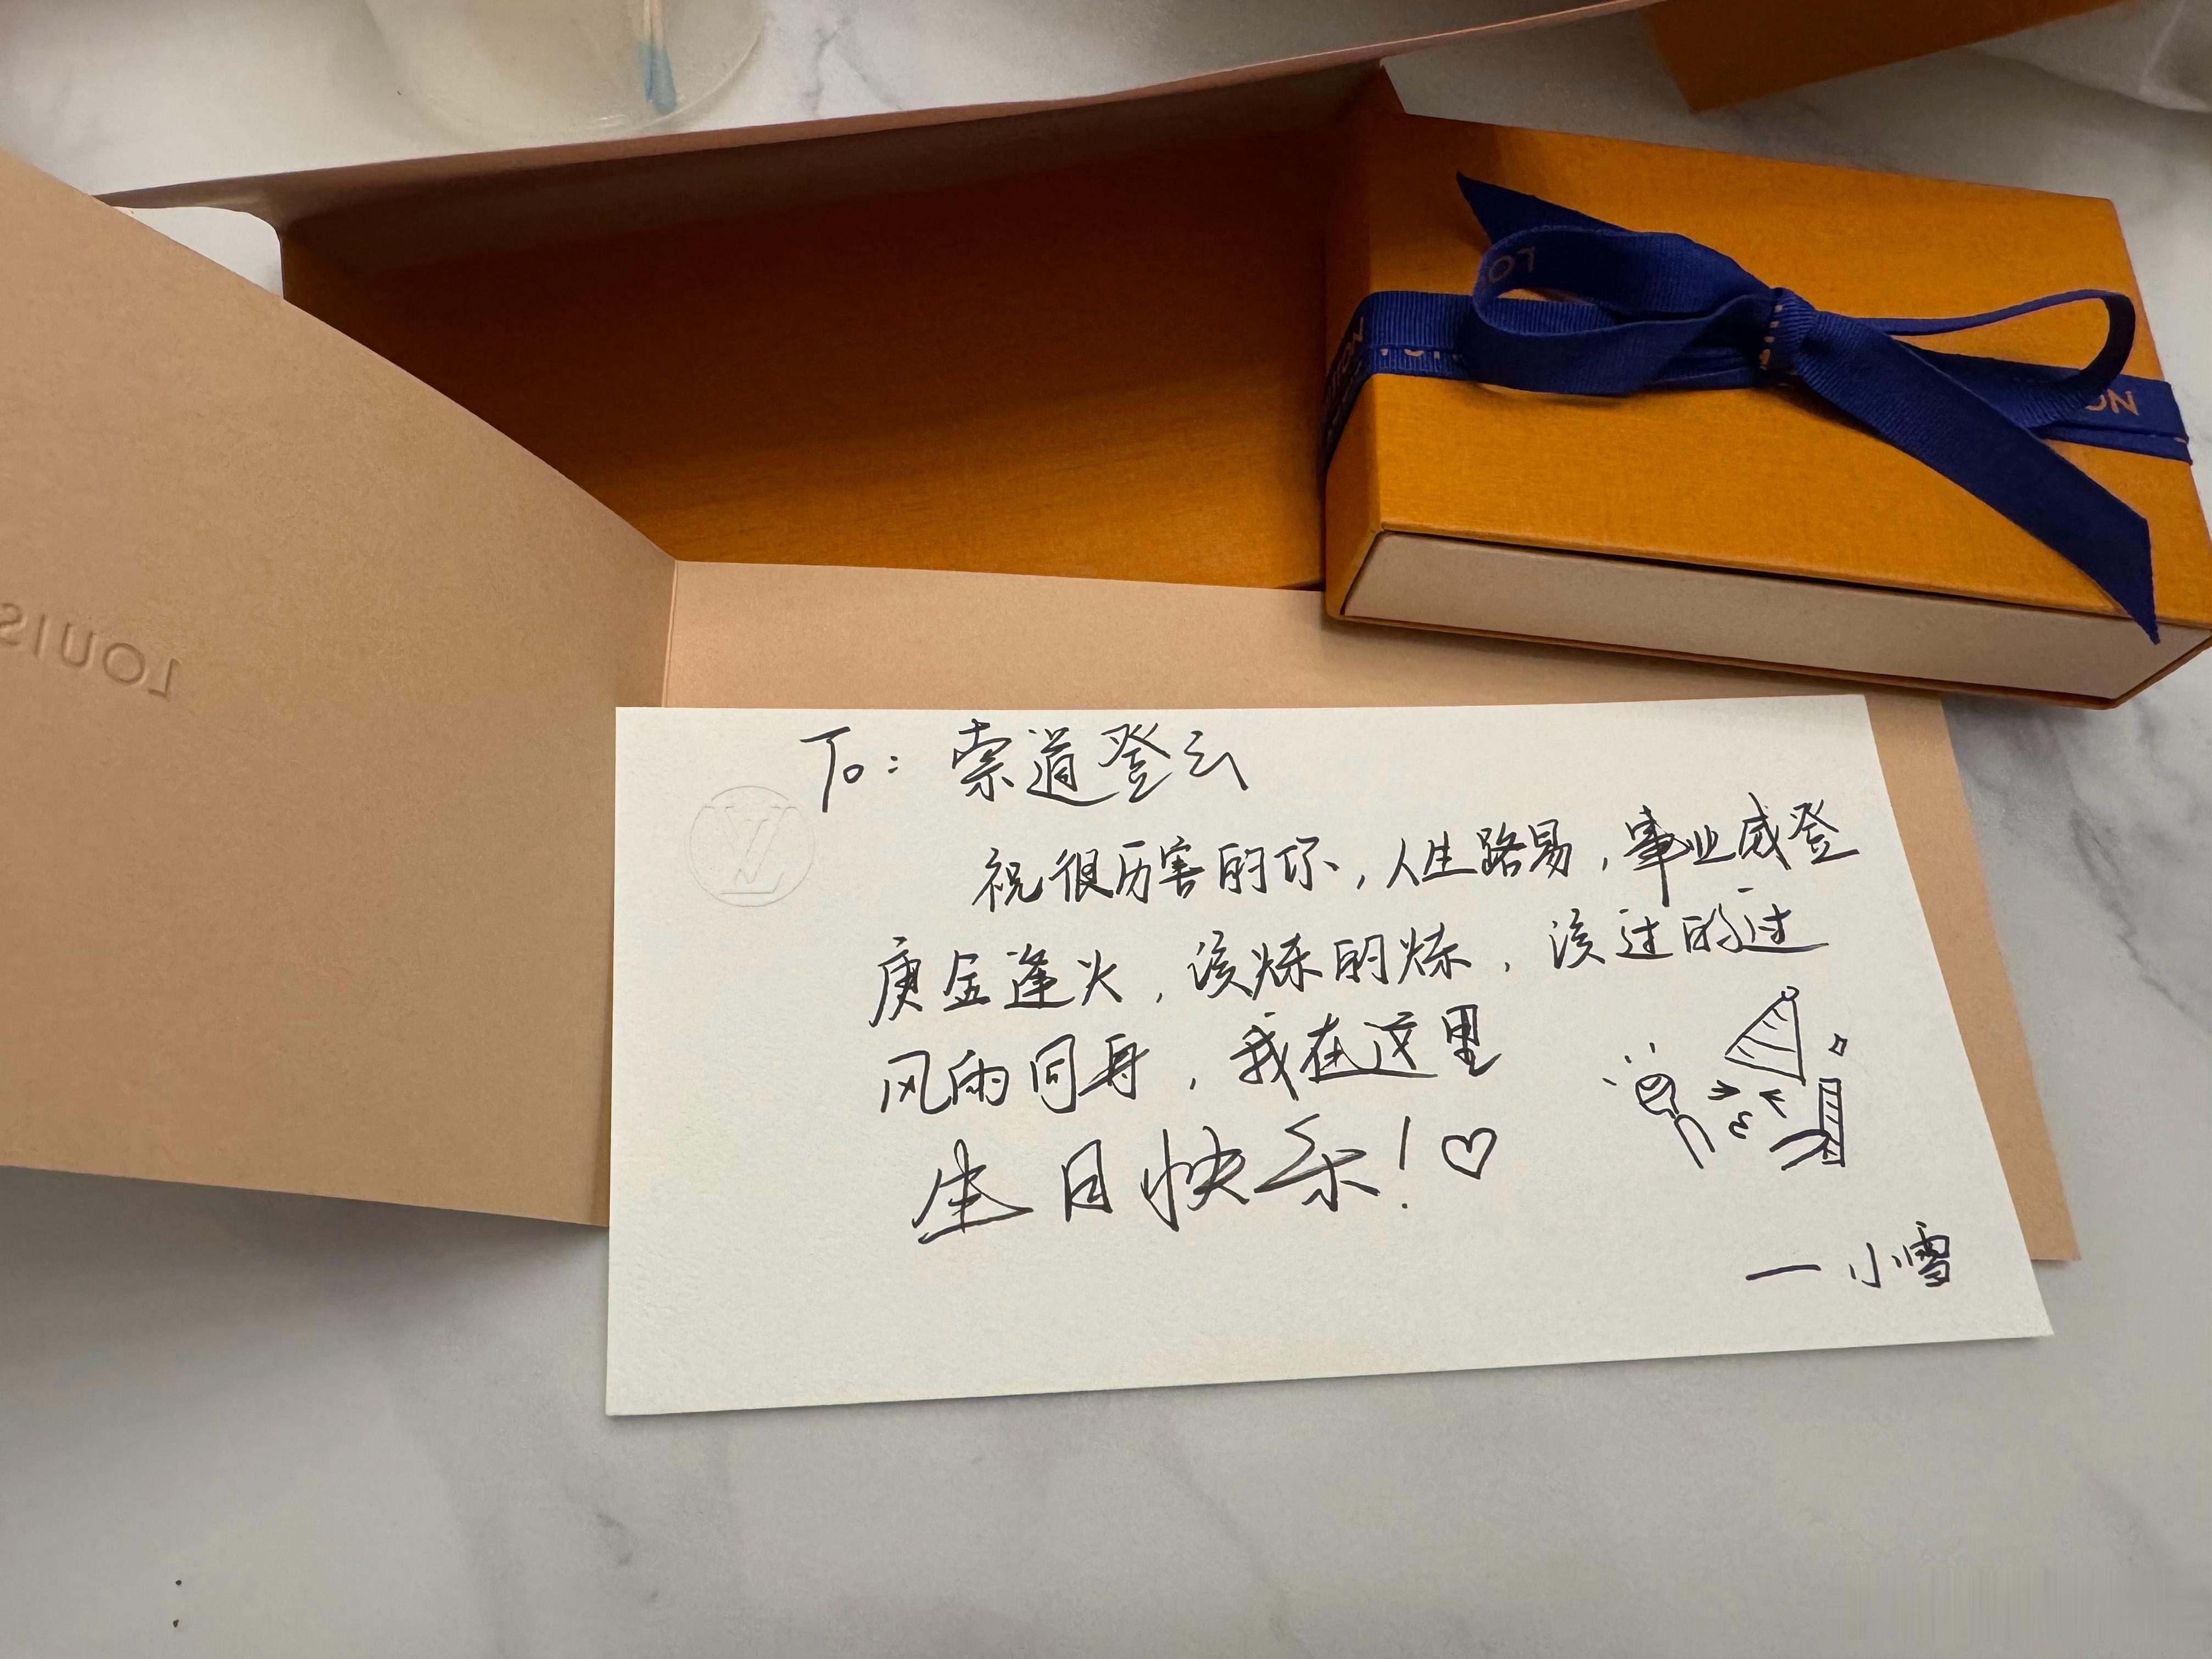 LO
TON
LOUIS
LV
To：索道登云
祝很厉害的你，人生路易，事业威登
庚金逢火，该炼的炼，该过的过
风雨同舟，我在这里
生日快乐！♡
—小雪